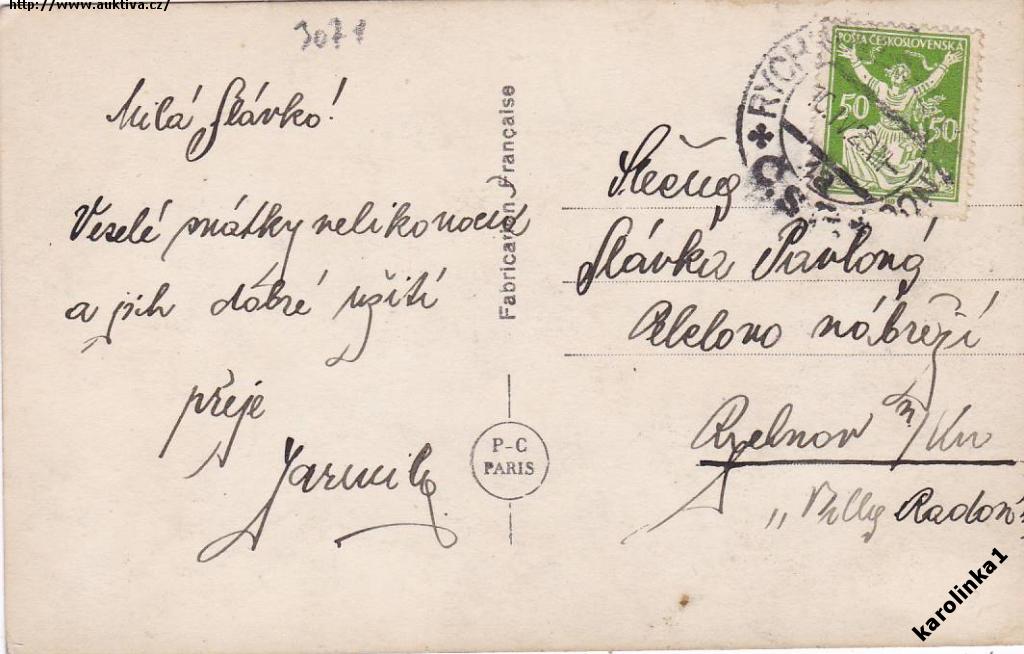 http://www.auktiva.cz/
3071
Milá Slávko!
Veselé svátky velikonoční
a jich dobré užití
přeje
Jarmila
Fabrication Française
P-C
PARIS
POŠTA ČESKOSLOVENSKÁ
50 50
RYCH
Slečna
Slávka Pavlová
nábřeží
n/Kn
"Villa Radon
karolinka1